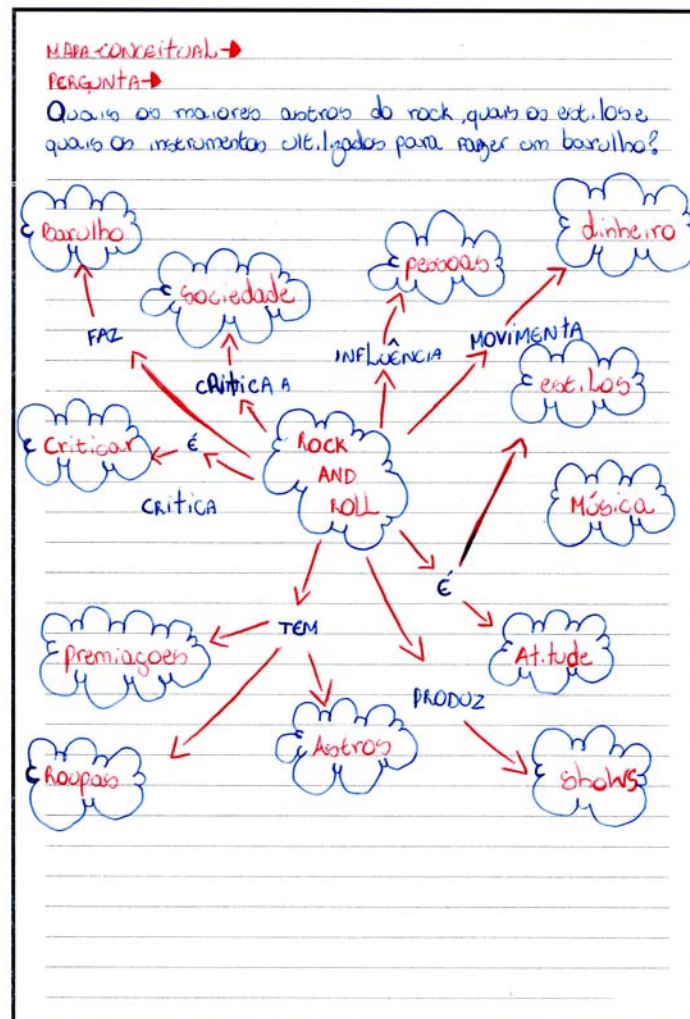 MAPA-CONCEITUAL→
PERGUNTA→
Quais os maiores astros do rock, quais os estilos e
quais os instrumentos ultilizados para fazer um barulho?
Barulho
Sociedade
pessoas
dinheiro
FAZ
CRITICA A
INFLUÊNCIA
MOVIMENTA
estilos
Criticar
É
ROCK
AND
ROLL
CRITICA
Música
É
Premiações
TEM
Atitude
PRODUZ
Roupas
Astros
shows